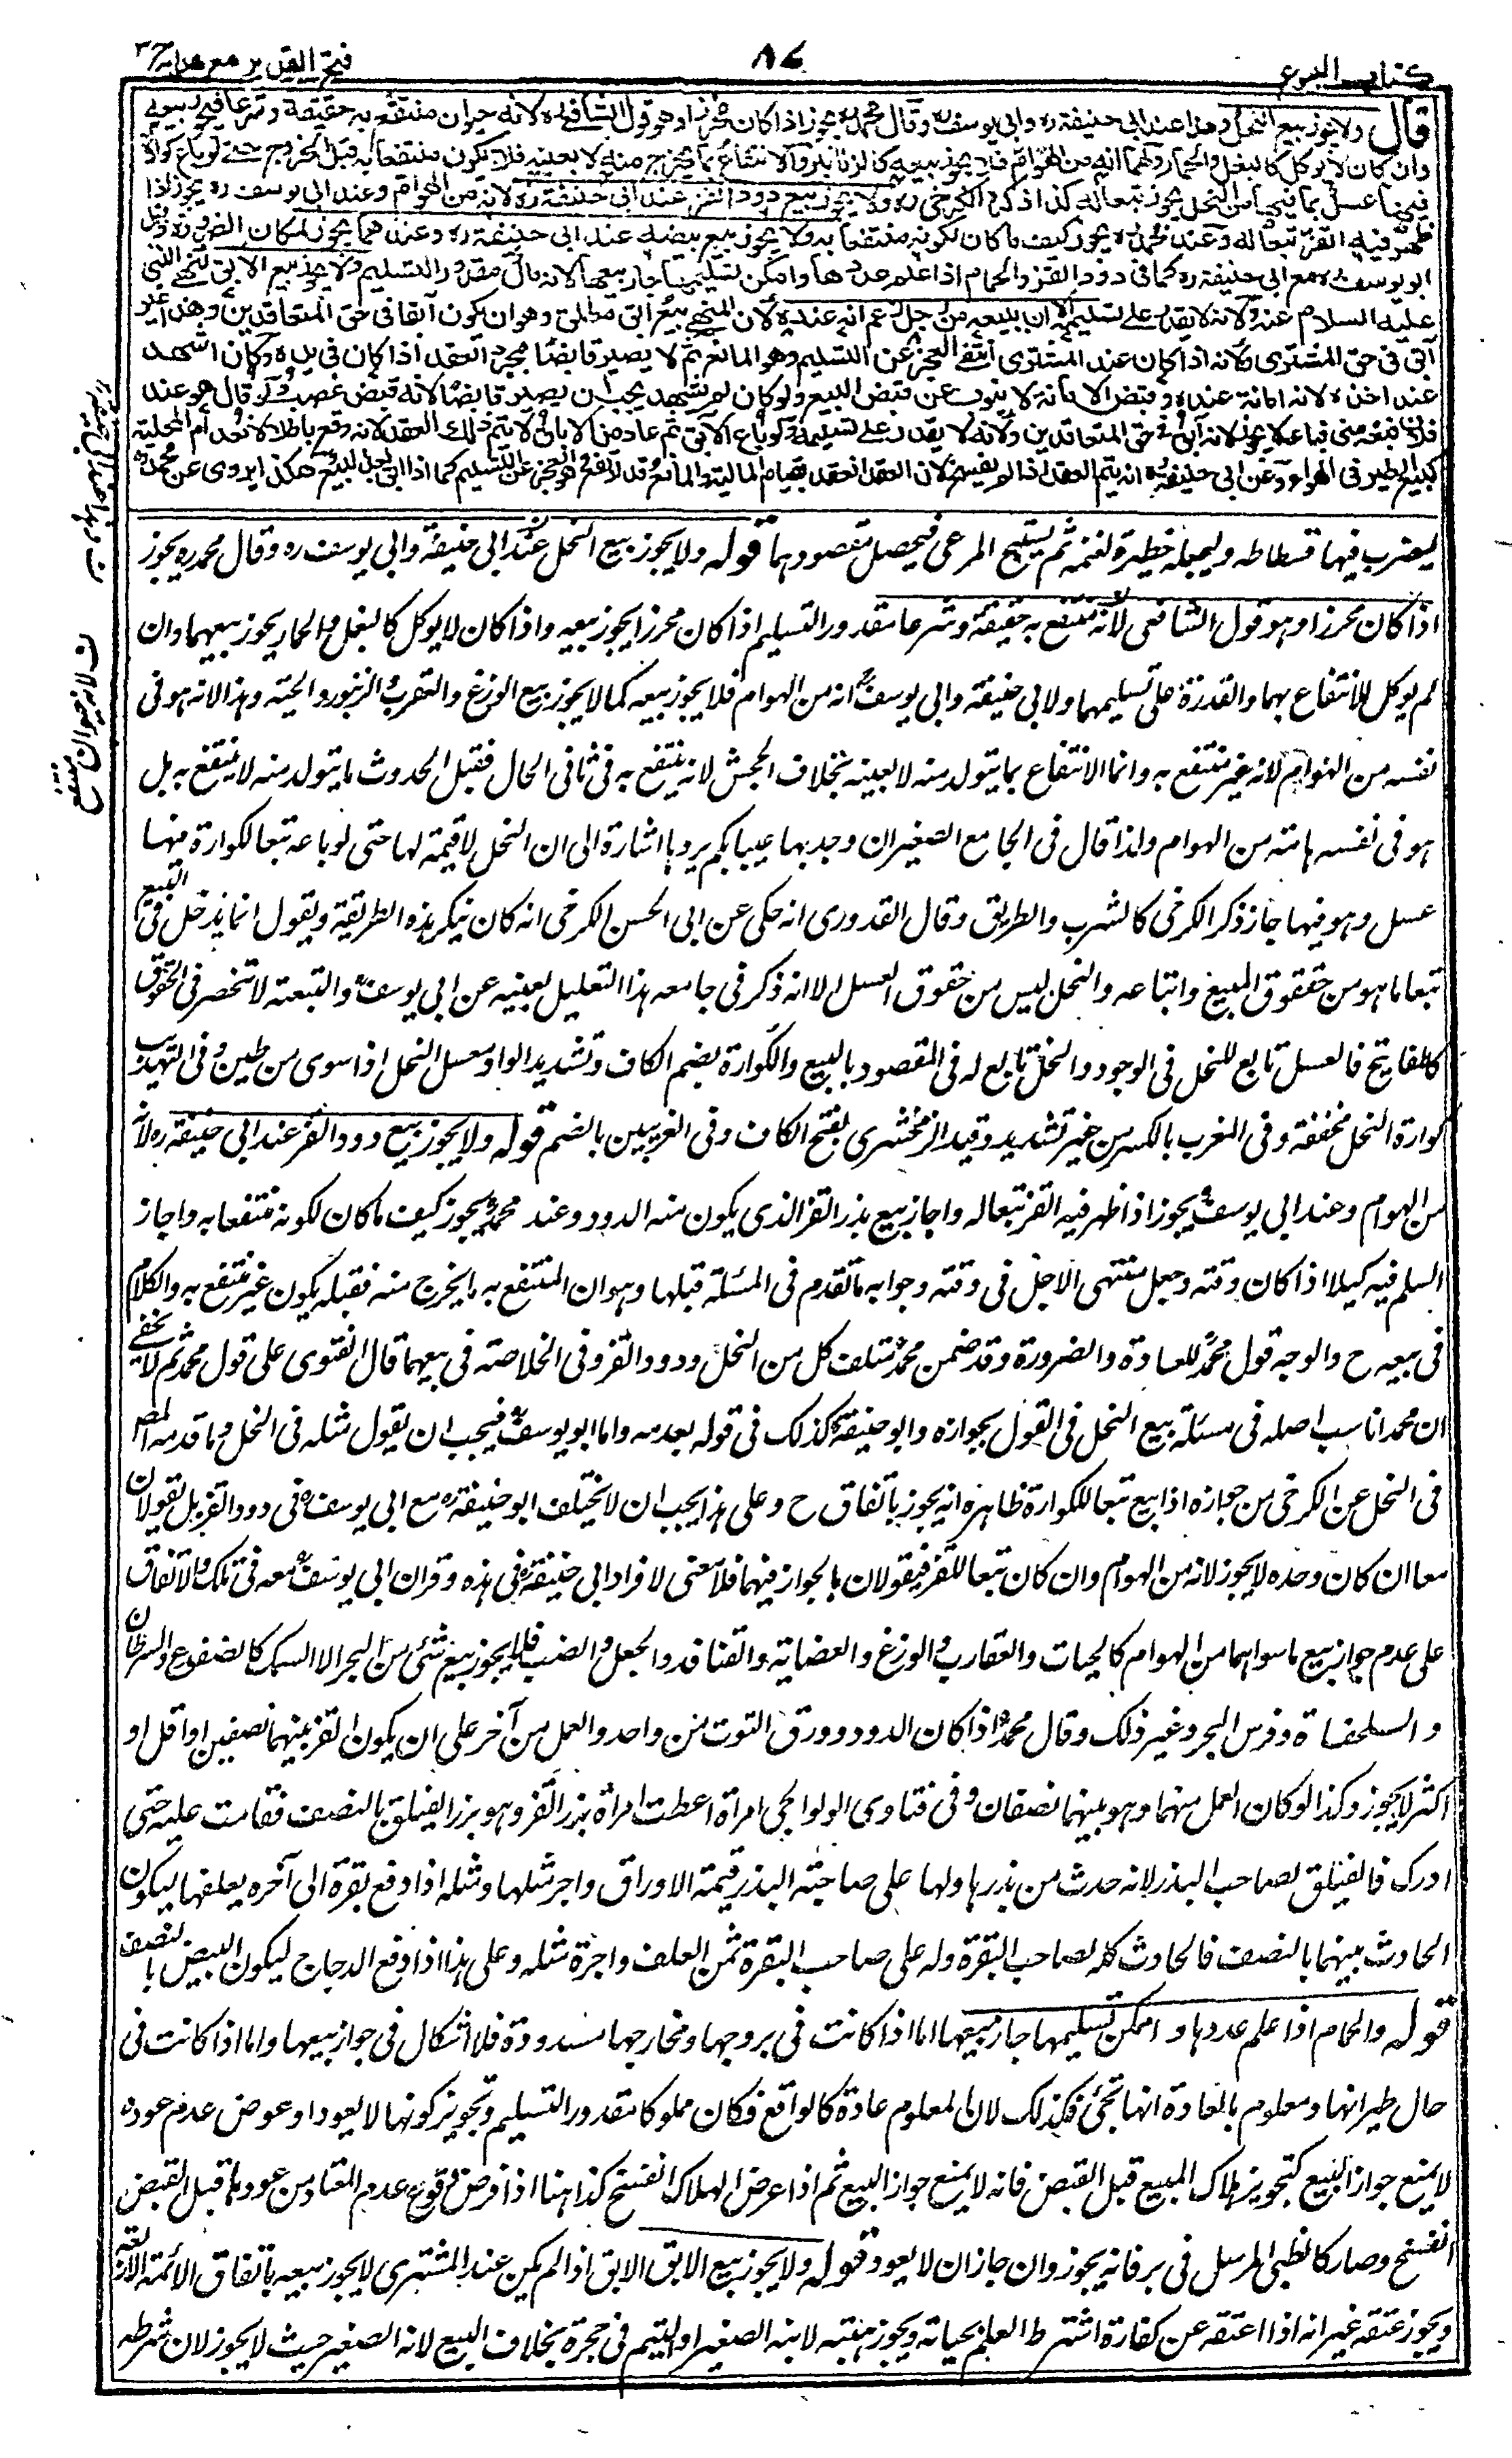 كتاب البيوع
٨٤
فتح القدير مع هداية ج٣
قال ولا يجوز بيع النحل وهذا عند ابي حنيفة ره وابي يوسف ره وقال محمد ره يجوز اذا كان محرزا وهو قول الشافعي ره لانه حيوان منتفع به حقيقة وشرعا فيجوز بيعه
وان كان لا يوكل كالبغل والحمار ولهما انه من الهوام فلا يجوز بيعه كالزنابير والانتفاع بما يخرج منه لا بعينه فلا يكون منتفعا به قبل الخروج حتى لو باع كوارة
فيها عسل بما فيها من النحل يجوز تبعا له كذا ذكره الكرخي ره ولا يجوز بيع دود القز عند ابي حنيفة ره لانه من الهوام وعند ابي يوسف ره يجوز اذا
ظهر فيه القز تبعا له وعند محمد ره يجوز كيف ما كان لكونه منتفعا به ولا يجوز بيع بيضه عند ابي حنيفة ره وعندهما يجوز لمكان الضرورة وقيل
ابو يوسف ره مع ابي حنيفة ره كما في دود القز والحمام اذا علم عددها وامكن تسليمها جاز بيعها لانه مال مقدور التسليم ولا يجوز بيع الابق لنهي النبي
عليه السلام عنه ولانه لا يقدر على تسليمه الا ان يبيعه من رجل زعم انه عنده لان المنهي بيع ابق مطلق وهو ان يكون آبقا في حق المتعاقدين وهذا غير
آبق في حق المشتري ولانه اذا كان عند المشتري انتفى العجز عن التسليم وهو المانع ثم لا يصير قابضا بمجرد العقد اذا كان في يده وكان اشهد
عند اخذه لانه امانة عنده وقبض الامانة لا ينوب عن قبض البيع ولو كان لم يشهد يجب ان يصير قابضا لانه قبض غصب ولو قال هو عند
فلان فبعه مني فباعه لا يجوز لانه ابق في حق المتعاقدين ولانه لا يقدر على تسليمه ولو باع الابق ثم عاد من الاباق لا يتم ذلك العقد لانه وقع باطلا لانعدام المحلية
كبيع الطير في الهواء وعن ابي حنيفة ره انه يتم العقد اذا لم يفسخ لان العقد انعقد بقيام المالية والمانع قد ارتفع وهو العجز عن التسليم كما اذا ابق بعد البيع هكذا يروى عن محمد ره
ليضرب فيها فسطاطه وليجعله حظيرة لغنمه ثم يستبيح المرعى فيحصل مقصودهما قوله ولا يجوز بيع النحل عند ابي حنيفة وابي يوسف ره وقال محمد ره يجوز
اذا كان محرزا وهو قول الشافعي لانه منتفع به حقيقة وشرعا مقدور التسليم اذا كان محرزا يجوز بيعه واذا كان لا يوكل كالبغل والحمار يجوز بيعهما وان
لم يوكل للانتفاع بهما والقدرة على تسليمهما ولابي حنيفة وابي يوسف انه من الهوام فلا يجوز بيعه كما لا يجوز بيع الوزغ والعقرب والزنبور والحية وهذا لانه هو في
نفسه من الهوام لانه غير منتفع به وانما الانتفاع بما يتولد منه لا بعينه بخلاف الجحش لانه ينتفع به في ثاني الحال فقبل الحدوث ما يتولد منه لا ينتفع به بل
هو في نفسه هامته من الهوام ولذا قال في الجامع الصغير ان وجد بها عيبا لم يردها اشارة الى ان النحل لا قيمة لها حتى لو باعه تبعا لكوارة فيها
عسل وهو فيها جاز ذكر الكرخي كالشرب والطريق وقال القدوري انه حكى عن ابي الحسن الكرخي انه كان ينكر هذه الطريقة ويقول انما يدخل في البيع
تبعا ما هو من حقوق المبيع واتباعه والنحل ليس من حقوق العسل الا انه ذكر في جامعه هذا التعليل بعينه عن ابي يوسف والتبعية لا تنحصر في الحقوق
كالمفاتيح فالعسل تابع للنحل في الوجود والنحل تابع له في المقصود بالبيع والكوارة بضم الكاف وتشديد الواو معسل النحل اذا سوى من طين وفي التهذيب
كوارة النحل مخففة وفي المغرب بالكسر من غير تشديد وقيد الزمخشري بفتح الكاف وفي الغريبين بالضم قوله ولا يجوز بيع دود القز عند ابي حنيفة ره لانه
من الهوام وعند ابي يوسف يجوز اذا ظهر فيه القز تبعا له واجاز بيع بذر القز الذي يكون منه الدود وعند محمد يجوز كيف ما كان لكونه منتفعا به واجاز
السلم فيه كيلا اذا كان وقته وجعل منتهى الاجل في وقته وجوابه ما تقدم في المسئلة قبلها وهو ان المنتفع به ما يخرج منه فقبله يكون غير منتفع به والكلام
في بيعه ح والوجه قول محمد للعادة والضرورة وقد ضمن محمد متلف كل من النحل ودود القز وفي الخلاصة في بيعهما قال الفتوى على قول محمد ثم لا يخفى
ان محمدا ناسب اصله في مسئلة بيع النحل في القول بجوازه وابو حنيفة كذلك في قوله بعدمه واما ابو يوسف فيجب ان يقول مثله في النحل وما قدمه المص
في النحل عن الكرخي من جوازه اذا بيع تبعا للكوارة ظاهره انه يجوز باتفاق ح وعلى هذا يجب ان لا يختلف ابو حنيفة ره مع ابي يوسف ره في دود القز بل يقولان
معا ان كان وحده لا يجوز لانه من الهوام وان كان تبعا للقز فيقولان بالجواز فيهما فلا معنى لافراد ابي حنيفة في هذه وقران ابي يوسف معه في تلك والاتفاق
على عدم جواز بيع ما سواهما من الهوام كالحيات والعقارب والوزغ والعضاية والقنافد والجعل والضب فلا يجوز بيع شئ من البحر الا السمك كالضفدع والسرطان
والسلحفاة وفرس البحر وغير ذلك وقال محمد اذا كان الدود وورق التوت من واحد والعمل من آخر على ان يكون القز بينهما نصفين او اقل او
اكثر لا يجوز وكذا لو كان العمل منهما وهو بينهما نصفان وفي فتاوى الولوالجي امراة اعطت امراة بذر القز وهو بزر الفيلق بالنصف فقامت عليه حتى
ادرك فالفيلق لصاحب البذر لانه حدث من بذرها ولها على صاحبة البذر قيمة الاوراق واجر مثلها ومثله اذا دفع بقرة الى آخره يعلفها ليكون
الحادث بينهما بالنصف فالحادث كله لصاحب البقرة وله على صاحب البقرة ثمن العلف واجرة مثله وعلى هذا اذا دفع الدجاج ليكون البيض بالنصف
قوله والحمام اذا علم عددها وامكن تسليمها جاز بيعها اما اذا كانت في بروجها ومخارجها مسدودة فلا اشكال في جواز بيعها واما اذا كانت في
حال طيرانها ومعلوم بالعادة انها تجئ فكذلك لان المعلوم عادة كالواقع فكان مملوكا مقدور التسليم وتجويز كونها لا يعود او عروض عدم عوده
لا يمنع جواز البيع كتجويز هلاك المبيع قبل القبض فانه لا يمنع جواز البيع ثم اذا عرض الهلاك انفسخ كذا هنا اذا فرض وقوع عدم المعتاد من عودها قبل القبض
انفسخ وصار كالظبي المرسل في بر فانه يجوز وان جاز ان لا يعود قوله ولا يجوز بيع الابق الابق اذا لم يكن عند المشتري لا يجوز بيعه باتفاق الائمة الاربعة
ويجوز عتقه غير انه اذا اعتقه عن كفارة اشترط العلم بحياته ويجوز هبته لابنه الصغير او اليتيم في حجره بخلاف البيع لانه الصغير حيث لا يجوز لان شرطه
ف لانه حيوان منتفع